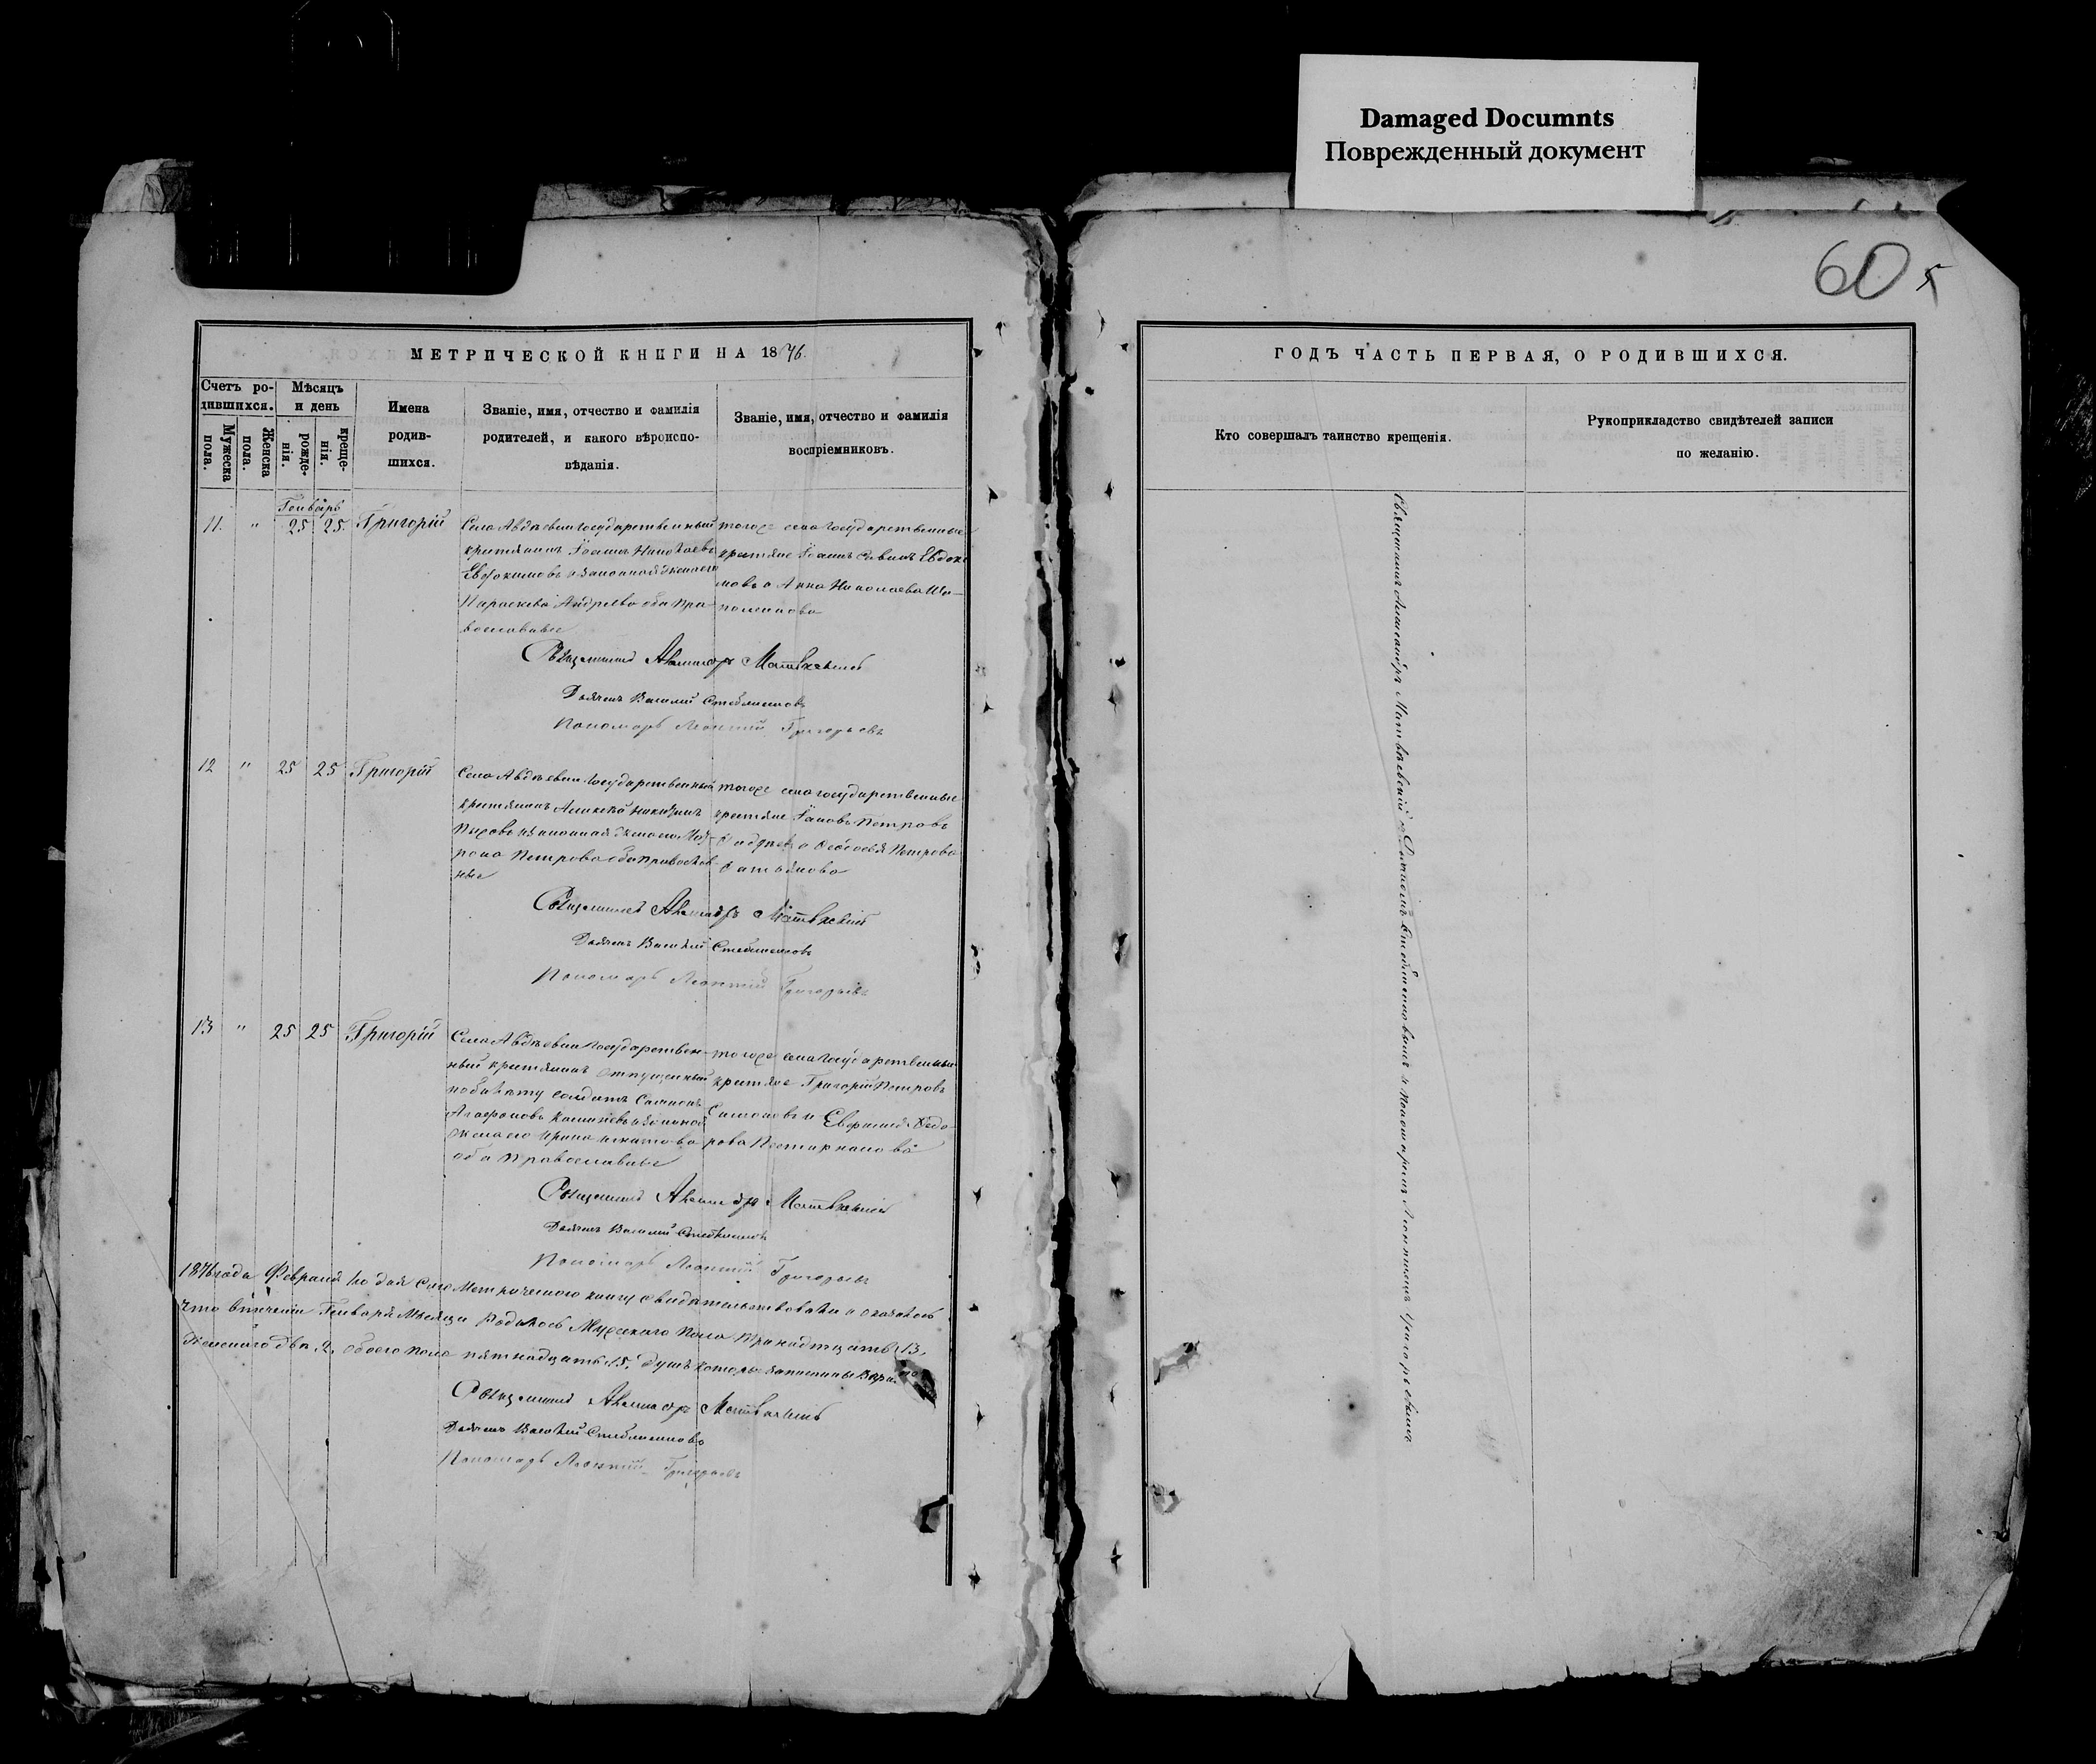 Damaged Documnts
Поврежденный документ
60
МЕТРИЧЕСКОЙ КНИГИ НА 1876.
Счетъ ро-
дившихся.
Мужеска
пола.
Женска
пола.
Мѣсяцъ
и день
рожде-
нія.
креще-
нія.
Имена
родив-
шихся.
Званіе, имя, отчество и фамилія
родителей, и какого вѣроиспо-
вѣданія.
Званіе, имя, отчество и фамилія
воспріемниковъ.
Генварь
11. " 25 25. Григорій
Села Авдѣевки государственный
крестьянинъ Іоаннъ Николаевъ
Евдокимовъ и законная жена его
Параскева Андреева оба пра-
вославные
тогоже села государственные
крестьяне Іоаннъ Савинъ Евдоки
мовъ и Анна Николаева Ша-
Священникъ Александръ Матвѣевскій
Дьячекъ Василій Стеблинковъ
Пономарь Леонтій Григорьевъ
12 " 25 25 Григорій
Села Авдѣевки государственный
крестьянинъ Алексѣй
законная жена его
Петрова оба православ-
ные
тогоже села государственные
крестьяне Іаковъ Петровъ
и Ѳеодосія Петрова
Священникъ Александръ Матвѣевскій
Дьячекъ Василій Стеблинковъ
Пономарь Леонтій Григорьевъ
13 " 25 25 Григорій
Села Авдѣевки государствен-
ный крестьянинъ отпущенный
по билету солдатъ
Агафоновъ и законная
жена его Ирина Никитова
оба православные
тогоже села государственные
крестьяне Григорій Петровъ
и Евфимія Ѳедо-
рова
Священникъ Александръ Матвѣевскій
Дьячекъ Василій Стеблинковъ
Пономарь Леонтій Григорьевъ
1876 года Февраля 1го дня сію Метрическую книгу свидѣтельствовали и оказалось
что втеченіи Генваря Мѣсяца Родилось Мужскаго пола тринадцать 13,
Женскаго два 2, обоего пола пятнадцать 15, душъ которые записаны
Священникъ Александръ Матвѣевскій
Дьячекъ Василій Стеблинковъ
Пономарь Леонтій Григорьевъ
ГОДЪ ЧАСТЬ ПЕРВАЯ, О РОДИВШИХСЯ.
Кто совершалъ таинство крещенія.
Рукоприкладство свидѣтелей записи
по желанію.
Священникъ Александръ Матвѣевскій съ Дьячкомъ Стеблинковымъ и Пономаремъ Леонтіемъ Григорьевымъ